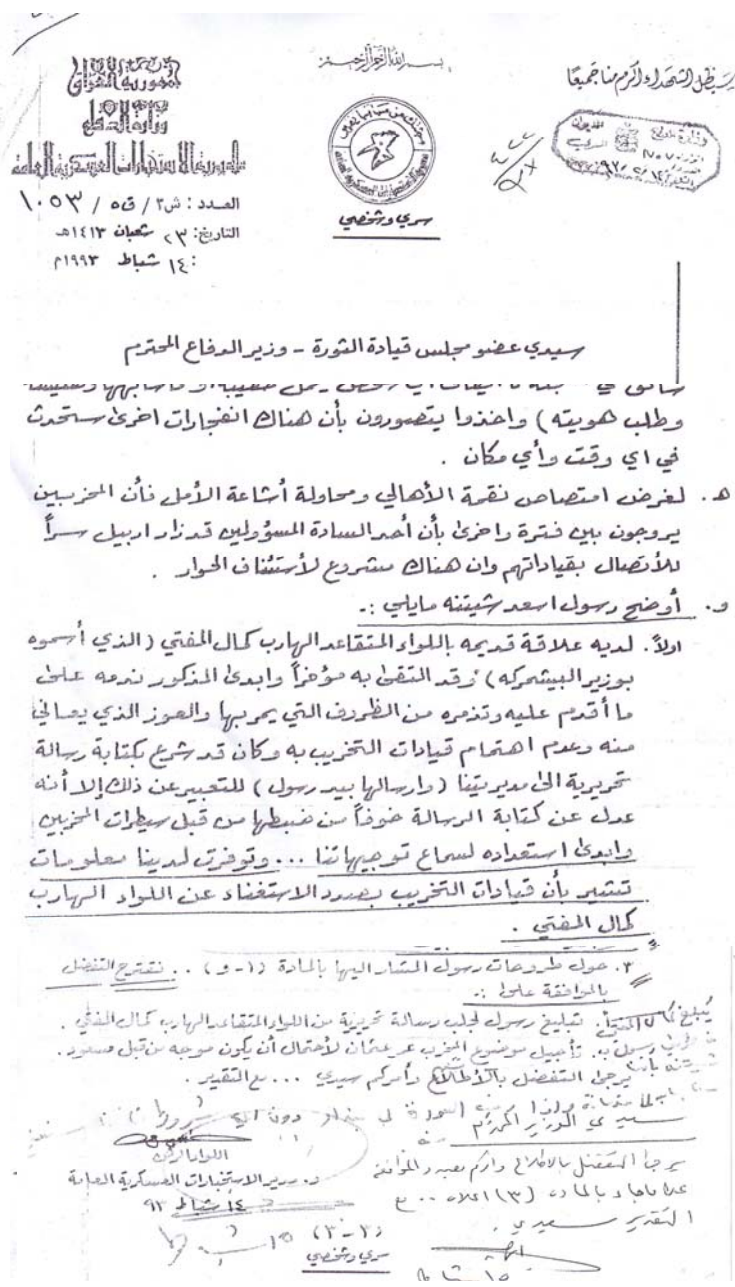 بسم الله الرحمن الرحيم
سيظل الشهداء أكرم منا جميعا
جمهورية العراق
وزارة الدفاع
مديرية الاستخبارات العسكرية العامة
العدد : ش٣ / ق٥ / ١٠٥٣
التاريخ : ٢٣ شعبان ١٤١٣هـ
: ١٤ شباط ١٩٩٣م
سري وشخصي
سيدي عضو مجلس قيادة الثورة - وزير الدفاع المحترم
وطلب هويته ) واخذوا يتصورون بأن هناك انفجارات اخرى ستحدث
في اي وقت وأي مكان .
هـ . لغرض امتصاص نقمة الأهالي ومحاولة أشاعة الأمل فأن المخربين
يروجون بين فترة واخرى بأن أحد السادة المسؤولين قد زار اربيل سراً
للأتصال بقياداتهم وان هناك مشروع لأستئناف الحوار .
و . أوضح رسول اسعد شيتنه مايلي :-
اولاً . لديه علاقة قديمه باللواء المتقاعد الهارب كمال المفتي ( الذي أسموه
بوزير البيشمركه ) وقد التقى به مؤخراً وابدى المذكور ندمه على
ما أقدم عليه وتذمره من الظروف التي يمر بها والعوز الذي يعاني
منه وعدم اهتمام قيادات التخريب به وكان قد شرع بكتابة رسالة
تحريرية الى مديريتنا ( وارسالها بيد رسول ) للتعبير عن ذلك إلا أنه
عدل عن كتابة الرسالة خوفاً من ضبطها من قبل سيطرات المخربين
وابدى استعداده لسماع توجيهاتنا ... وتوفرت لدينا معلومات
تشير بأن قيادات التخريب بصدد الاستغناء عن اللواء الهارب
كمال المفتي .
٣. حول طروحات رسول المشار اليها بالمادة (١-و) .. نقترح التفضل
بالموافقة على :-
أ. تبليغ رسول لجلب رسالة تحريرية من اللواء المتقاعد الهارب كمال المفتي .
ب. تأجيل موضوع المخرب عمر عثمان لأحتمال أن يكون موجه من قبل مسعود .
يرجى التفضل بالأطلاع وأمركم سيدي ... مع التقدير .
سيدي الوزير المحترم
اللواء الركن
د. مدير الاستخبارات العسكرية العامة
١٤ شباط ٩٣
يرجى التفضل بالاطلاع وامركم بصدد الموافقة
على ماجاء بالمادة (٣) اعلاه .. مع
التقدير سيدي .
(٣-٣)
سري وشخصي